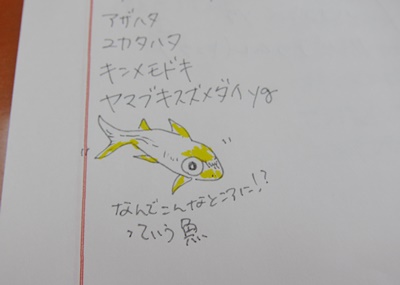 アザハタ
ユカタハタ
キンメモドキ
ヤマブキスズメダイyg
なんでこんなところに!?
っていう魚